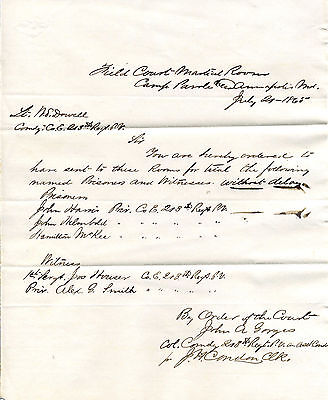 Field Court Martial Rooms
Camp Parole Annapolis Md.
July 1865
Lt. McDowell
Comdg Co. C. 208th Regt P.V.
Sir
You are hereby ordered to
have sent to these Rooms for trial the following
named Prisoners and Witnesses, without delay
Prisoners
John Harris Priv. Co. C. 208th Regt P.V.
John " " " "
Hamilton McKee " " " "
Witness
1st Sergt. Jos Houser Co. C. 208th Regt. P.V.
Priv. Alex G. Smith " " " "
By Order of the Court
John A Gorges
Col. Comdg 208th Regt P.V.
J. H. Condon Clk.